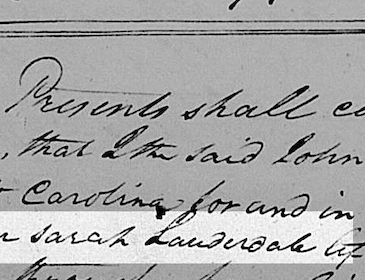 Presents shall
, that I the said John
Carolina for and in
Sarah Lauderdale